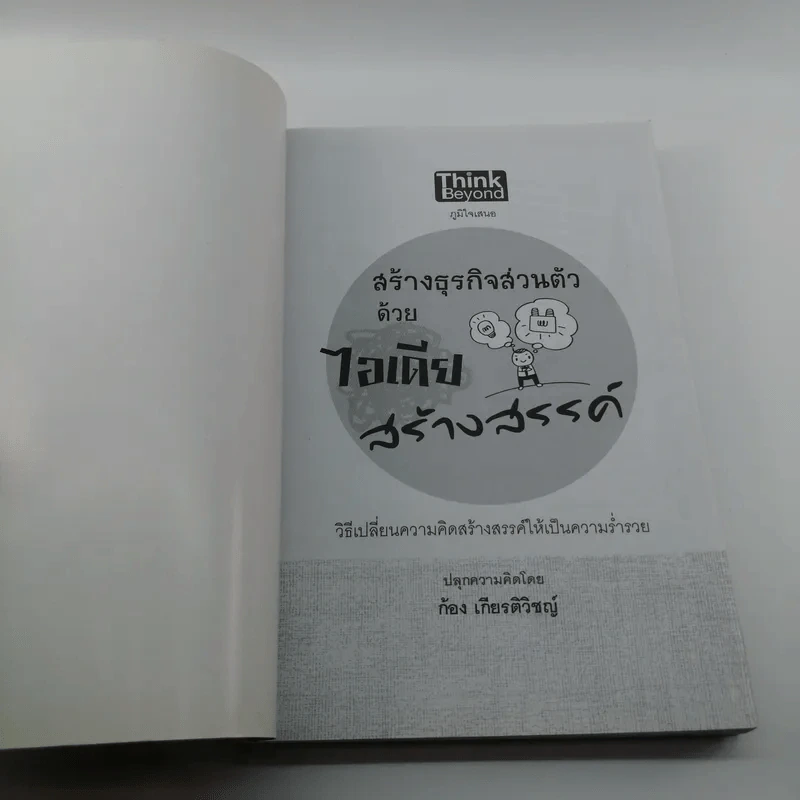 Think
Beyond
ภูมิใจเสนอ
สร้างธุรกิจส่วนตัว
ด้วย
ไอเดีย
สร้างสรรค์
วิธีเปลี่ยนความคิดสร้างสรรค์ให้เป็นความร่ำรวย
ปลุกความคิดโดย
ก้อง เกียรติวิชญ์